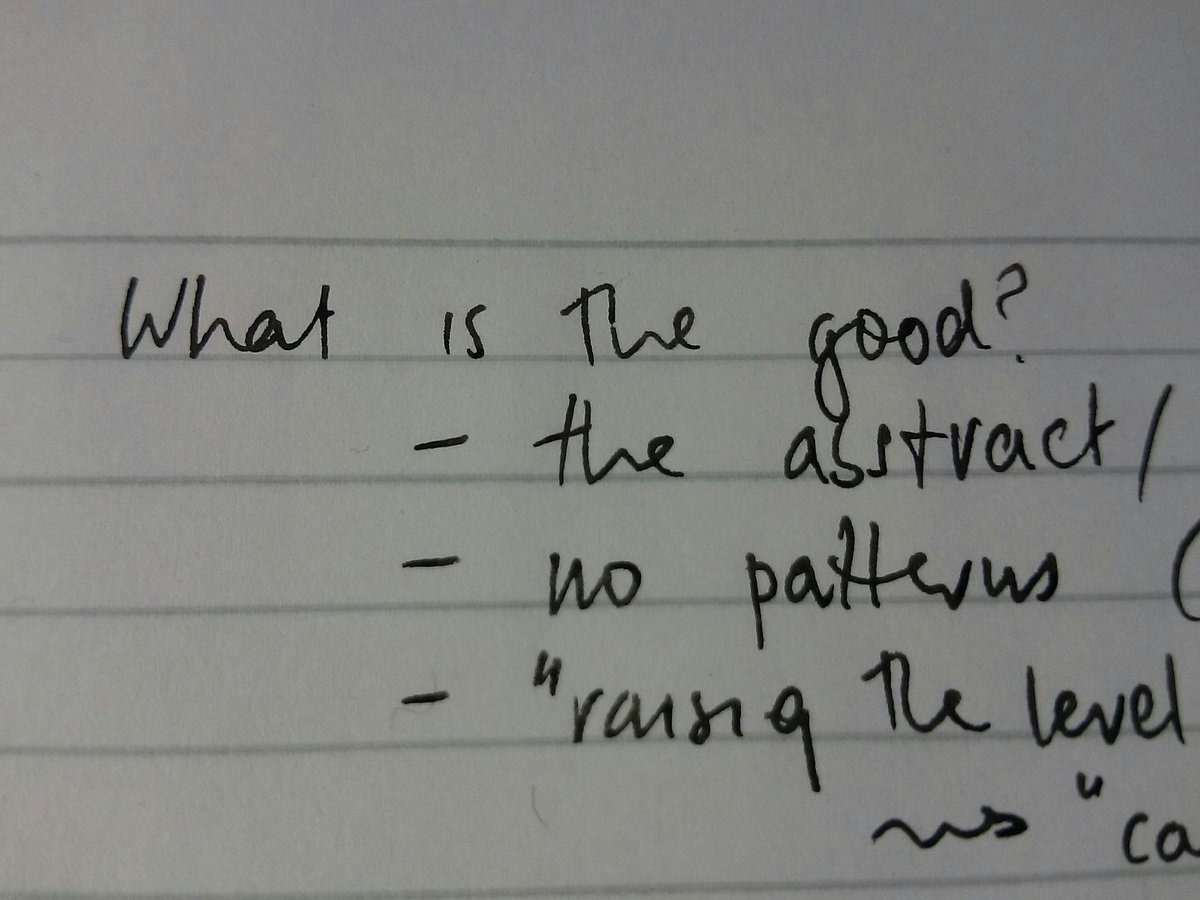 What is the good?
- the abstract/
- no patterns (
- "raising the level
"ca